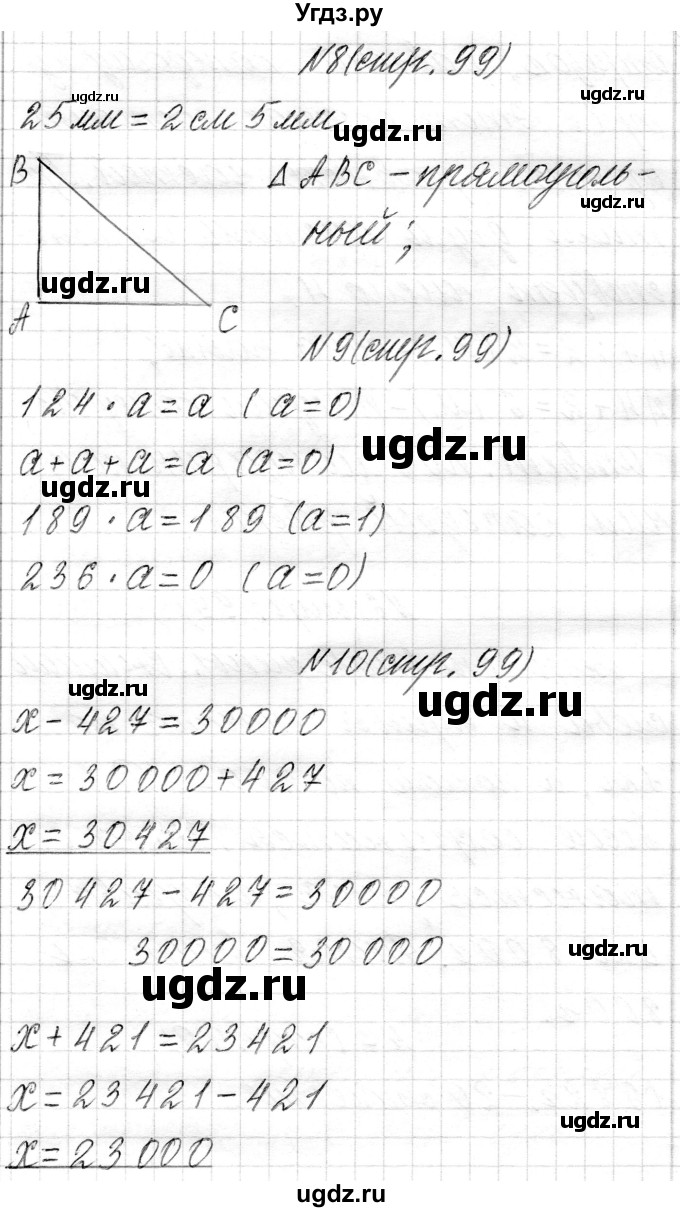 Угдз.ру
№8(стр. 99)
ugdz.ru
ugdz.ru
25мм = 2см 5мм
ugdz.ru
B
△ ABC – прямоуголь-
ugdz.ru
ный;
ugdz.ru
A
C
№9(стр. 99)
124 · a = a ( a=0)
ugdz.ru
a+a+a=a (a=0)
ugdz.ru
189 · a = 189 (a=1)
236 · a = 0 (a=0)
№10(стр. 99)
ugdz.ru
ugdz.ru
x – 427 = 30000
x = 30000 + 427
x = 30427
30427 – 427 = 30000
30000 = 30000
ugdz.ru
ugdz.ru
x + 421 = 23421
x = 23421 – 421
ugdz.ru
x = 23000
ugdz.ru